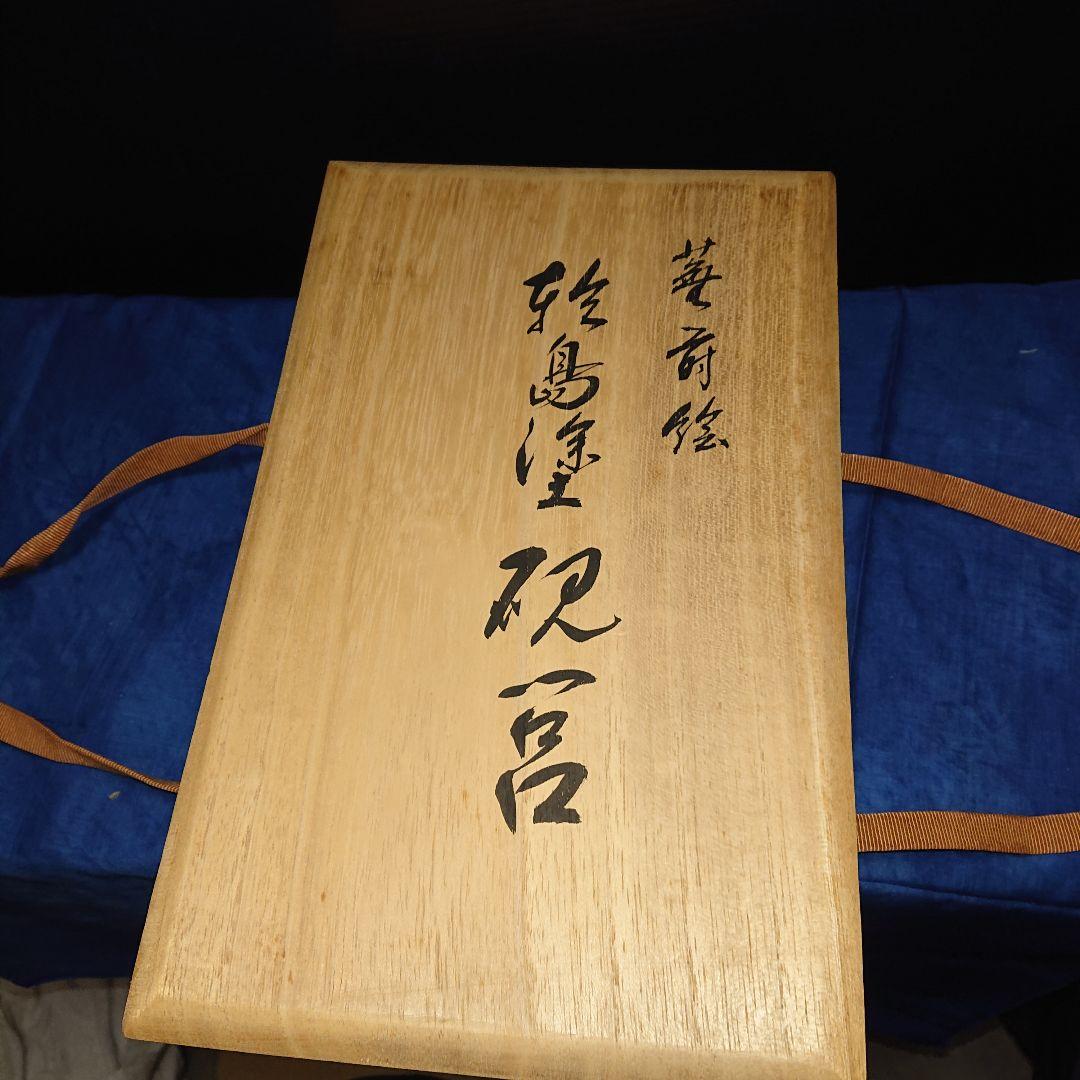 蕪蒔絵
輪島塗 硯筥